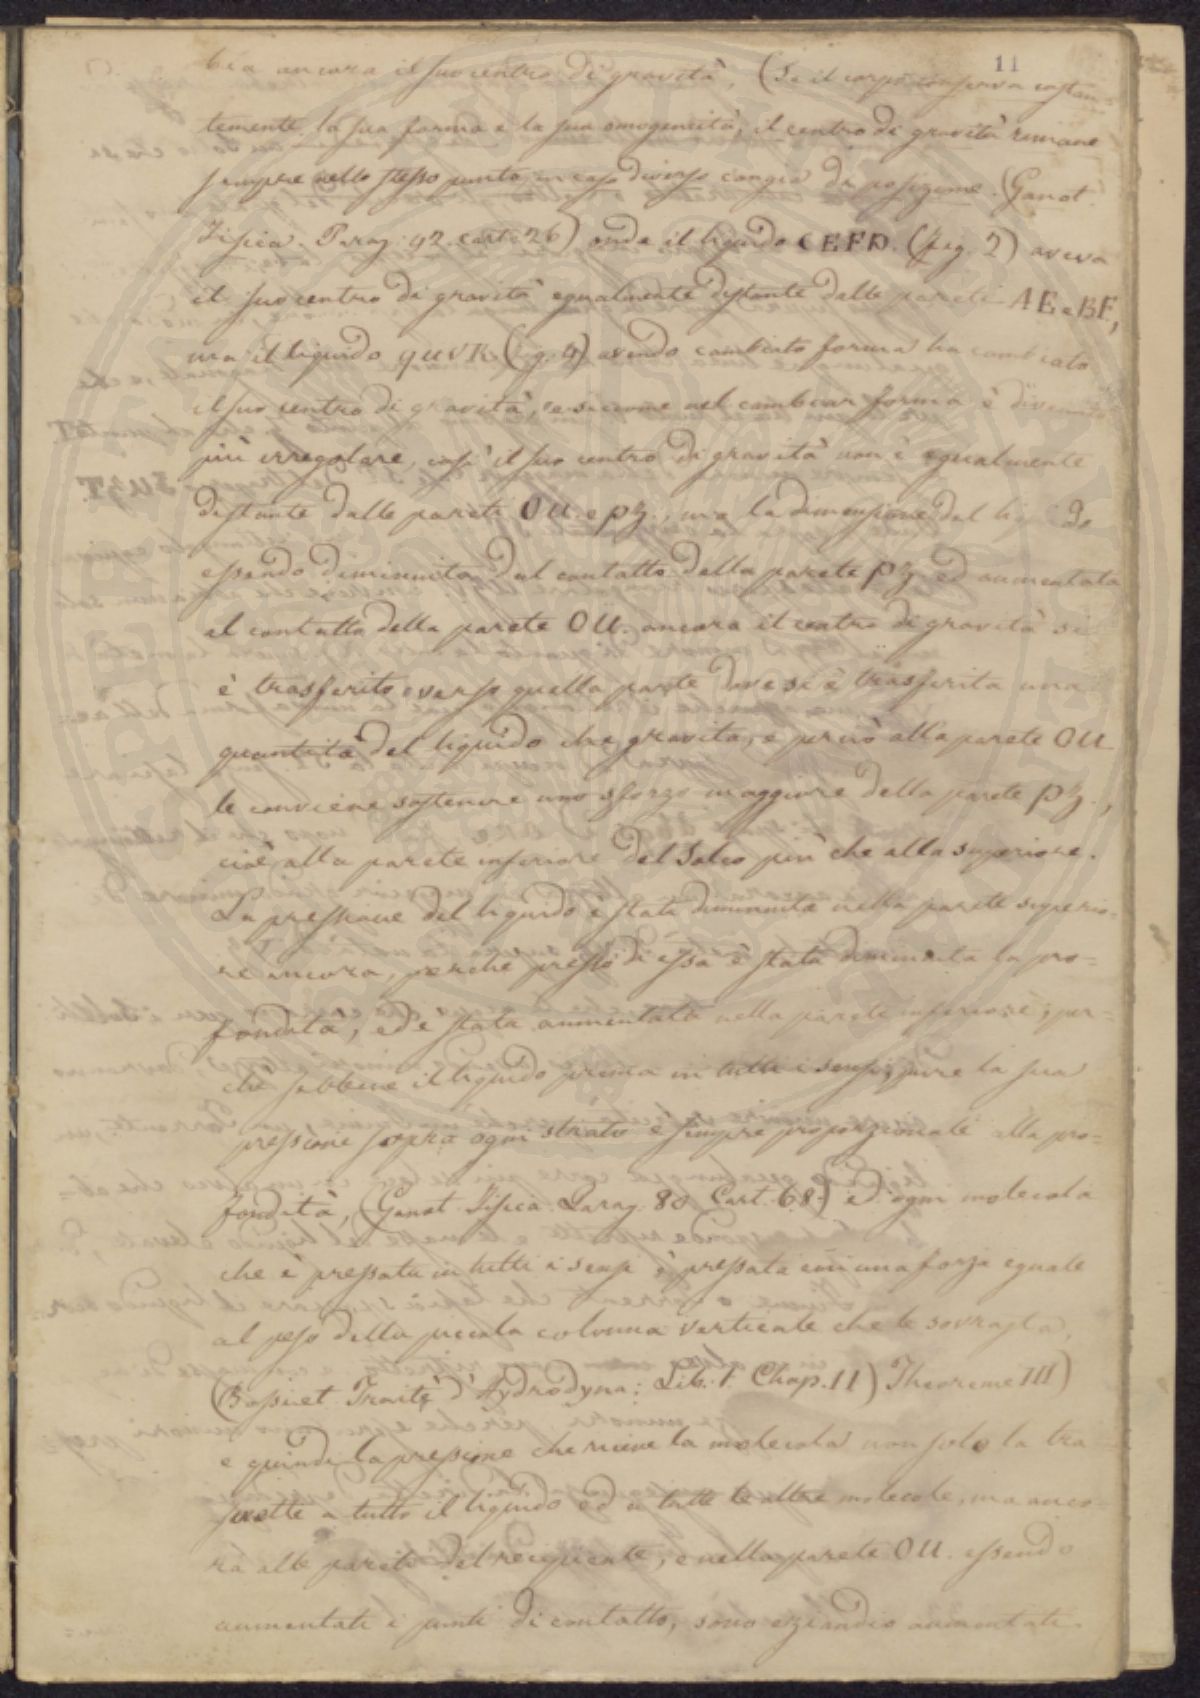 11
bia ancora il suo centro di gravità, (Se il corpo conserva costan=
temente la sua forma e la sua omogeneità, il centro di gravità rimane
sempre nello stesso punto, in caso diverso cangia di posizione. (Ganot.
Fisica. Parag: 42. carte 26) onde il liquido CEFD. (fig. 2) aveva
il suo centro di gravità egualmente distante dalle pareti AE e BF,
ma il liquido quvR (fig. 4) avendo cambiato forma ha cambiato
il suo centro di gravità, e siccome nel cambiar forma è divenuto
più irregolare, così il suo centro di gravità non è egualmente
distante dalle pareti OU. e pz., ma la dimensione del liquido
essendo diminuita dal contatto della parete pz ed aumentata
al contatto della parete OU. ancora il centro di gravità si
è trasferito verso quella parte dove si è trasferita una
quantità del liquido che gravita, e perciò alla parete OU
le conviene sostenere uno sforzo maggiore della parete pz.,
cioè alla parete inferiore del Solco più che alla superiore.
La pressione del liquido è stata diminuita nella parete superio=
re ancora, perchè presso di essa è stata diminuita la pro=
fondità, ed è stata aumentata nella parete inferiore; per=
chè sebbene il liquido prema in tutti i sensi, pure la sua
pressione sopra ogni strato è sempre proporzionale alla pro=
fondità, (Ganot. Fisica. Parag. 80 Cart. 68.) ed ogni molecola
che è pressata in tutti i sensi è pressata con una forza eguale
al peso della piccola colonna verticale che le sovrasta,
(Bossuet. Traité d'Hydrodyna: Lib. 1. Chap. II) Theoreme III)
e quindi la pressione che riceve la molecola non solo la tra
smette a tutto il liquido ed a tutte le altre molecole, ma anco=
ra alle pareti del recipiente, e nella parete OU. essendo
aumentati i punti di contatto, sono eziandio aumentati.